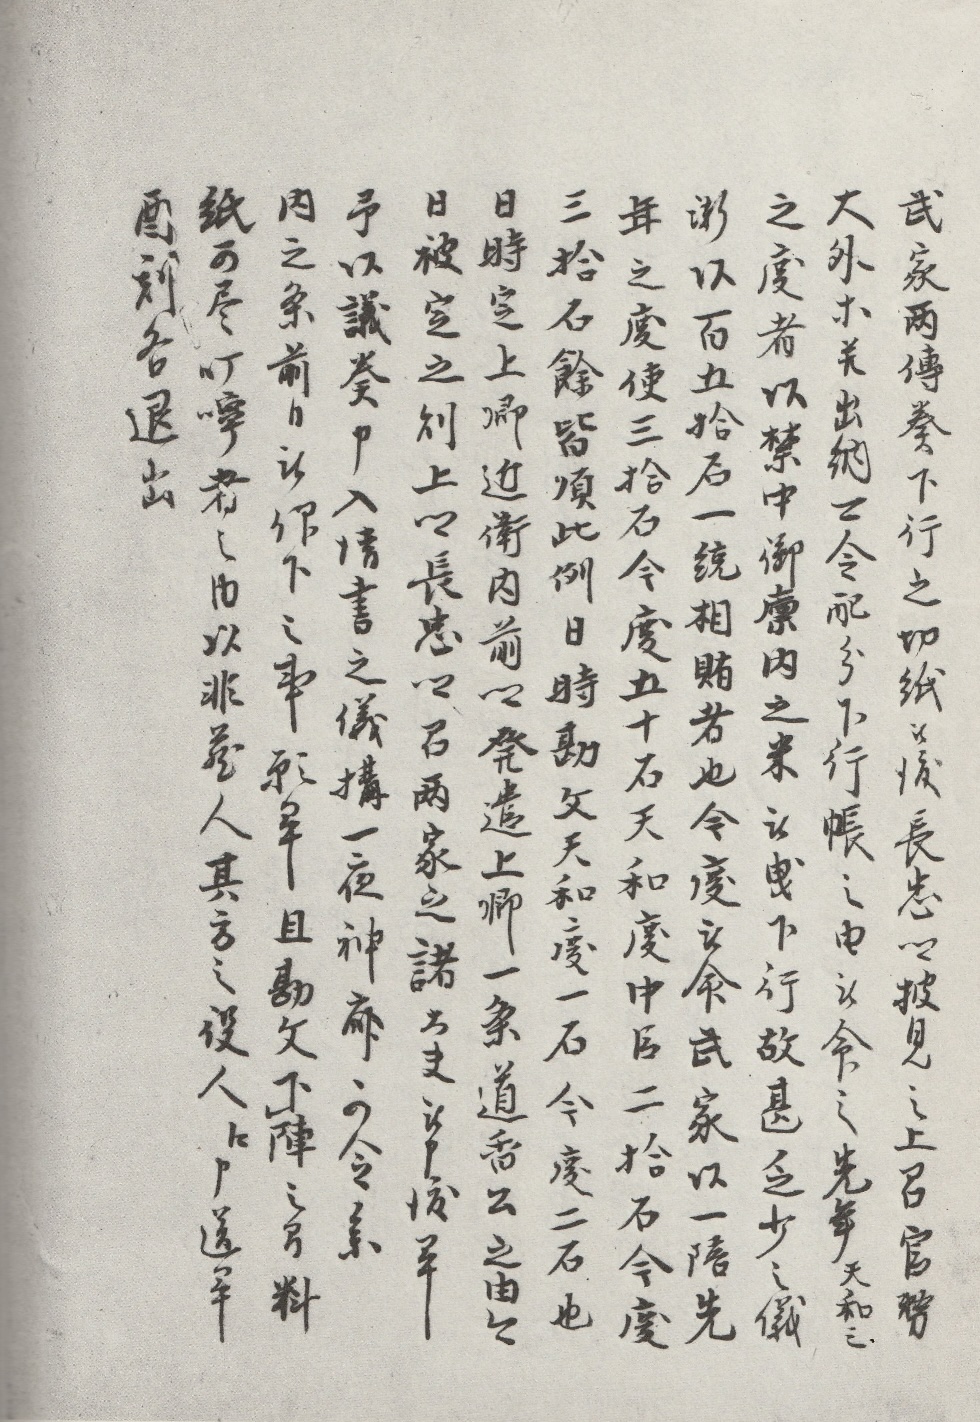 武家両傳奏下行之切紙被渡長忠卿披見之上召官務
大外出納可令配分下行帳之由被命之先年天和三
之度者以禁中御廩内之米被曳下行故甚乏少之儀
漸以百五拾石一統相賄者也今度被命武家以一陪先
年之度使三拾石今度五十石天和度中臣二拾石今度
三拾石餘皆順此例日時勘文天和度一石今度二石也
日時定上卿近衛内前卿発遣上卿一条道香公之由今
日被定之刻上卿長忠卿召両家之諸大夫被申渡畢
予以議奏申入清書之儀搆一夜神齋可令参
内之条前日被仰下之事願畢且勘文下陣之間料
紙可尽叮嚀者之由以非蔵人其方之役人申送畢
酉刻各退出